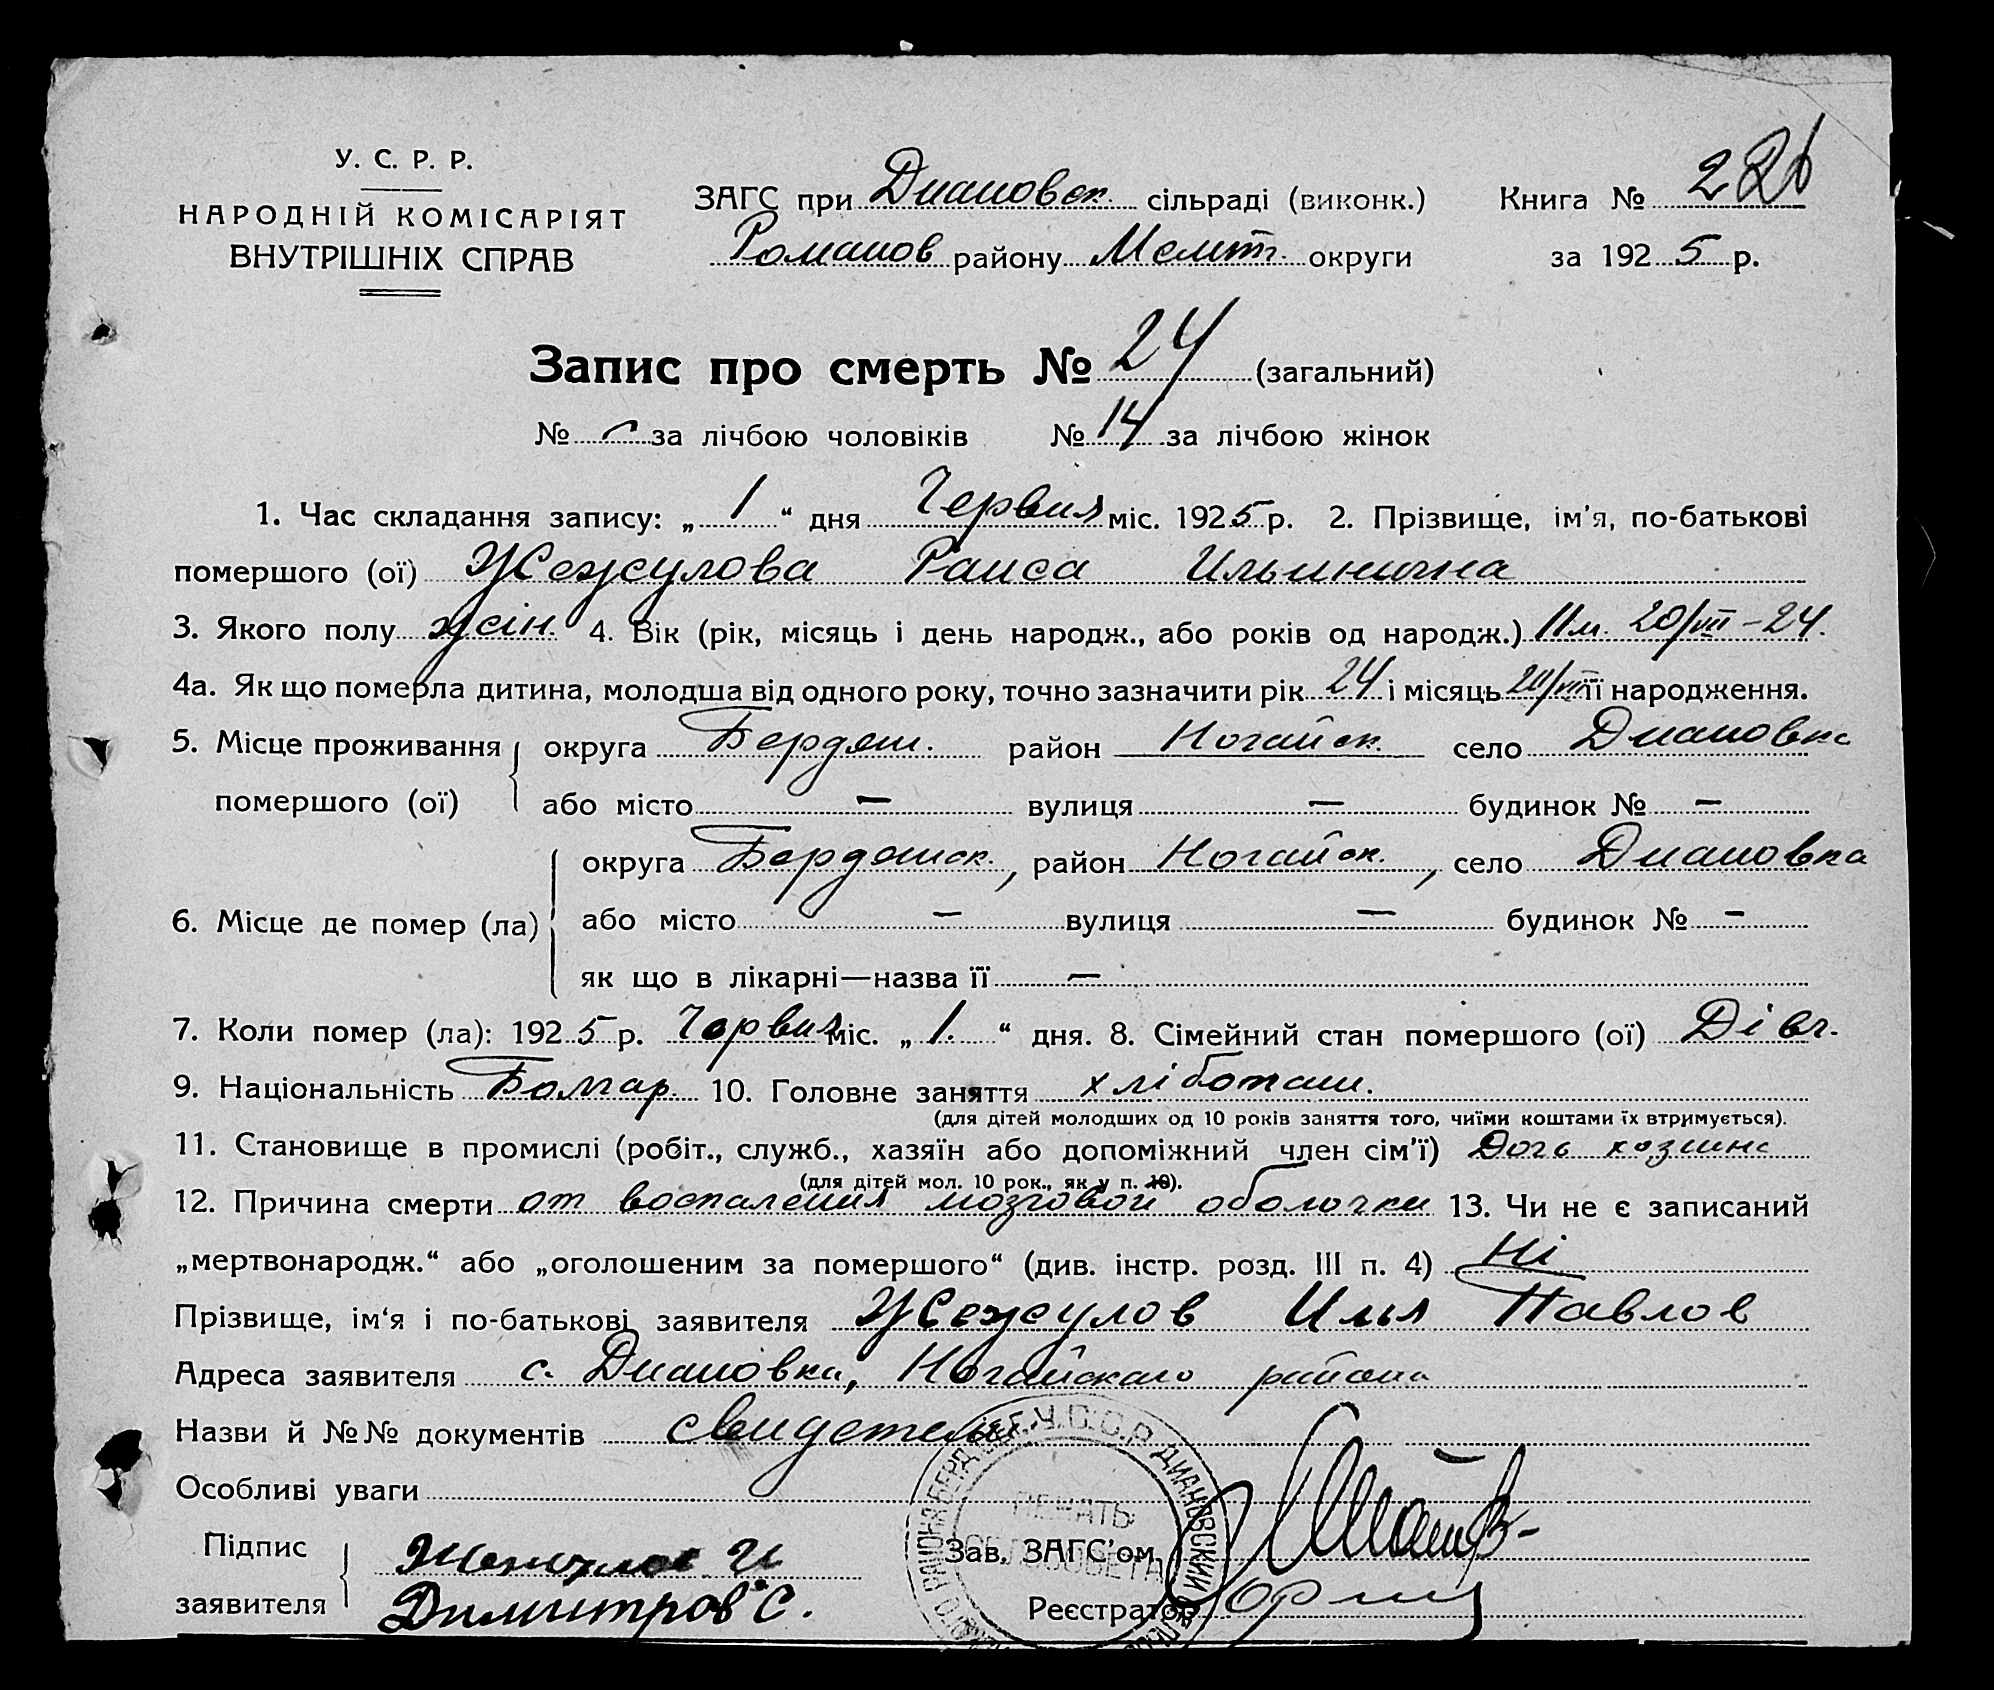 У. С. Р. Р.
НАРОДНІЙ КОМІСАРІЯТ
ВНУТРІШНІХ СПРАВ
ЗАГС при Диановск. сільраді (виконк.) Книга №
Романов району Меліт. округи за 1925 р.
Запис про смерть № 24 (загальний)
№ – за лічбою чоловіків № 14 за лічбою жінок
1. Час складання запису: „1“ дня Червня міс. 1925 р. 2. Прізвище, ім'я, по-батькові
помершого (ої) Жежулова Раиса Ильинична
3. Якого полу жін. 4. Вік (рік, місяць і день народж., або років од народж.) 11 м. 20/VII – 24.
4а. Як що померла дитина, молодша від одного року, точно зазначити рік 24 і місяць 20/VII її народження.
5. Місце проживання помершого (ої) округа Бердян. район Ногайск. село Диановка
або місто – вулиця – будинок № –
6. Місце де помер (ла) округа Бердянск., район Ногайск., село Диановка
або місто – вулиця – будинок № –
як що в лікарні—назва її –
7. Коли помер (ла): 1925 р. Червня міс. „1.“ дня. 8. Сімейний стан помершого (ої) Дівч.
9. Національність Болгар. 10. Головне заняття хліботаш.
(для дітей молодших од 10 років заняття того, чиїми коштами їх втримується).
11. Становище в промислі (робіт., служб., хазяїн або допоміжний член сім'ї) Дочь хозяина
(для дітей мол. 10 рок., як у п. 10).
12. Причина смерти от воспаления мозговой оболочки 13. Чи не є записаний
„мертвонародж.“ або „оголошеним за помершого“ (див. інстр. розд. III п. 4) Ні
Прізвище, ім'я і по-батькові заявителя Жежулов Илья Павлов
Адреса заявителя с. Диановка, Ногайскаго района
Назви й №№ документів свидетели
Особливі уваги
Підпис
заявителя Жежулов И
Димитров С.
Зав. ЗАГС'ом
Реєстратор
У.С.С.Р. ДИАНОВСКИЙ
ПЕЧАТЬ
СЕЛЬСОВЕТА